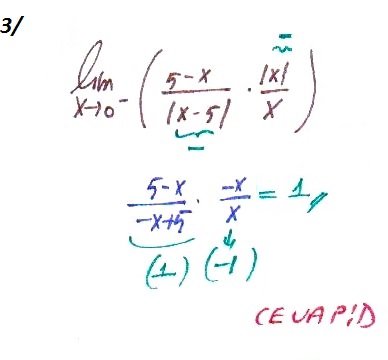 3/
lim x→0⁻ ( (5-x)/|x-5| · |x|/x )
(5-x)/(-x+5) · (-x)/x = 1,,
(1) (-1)
CEVAP: D